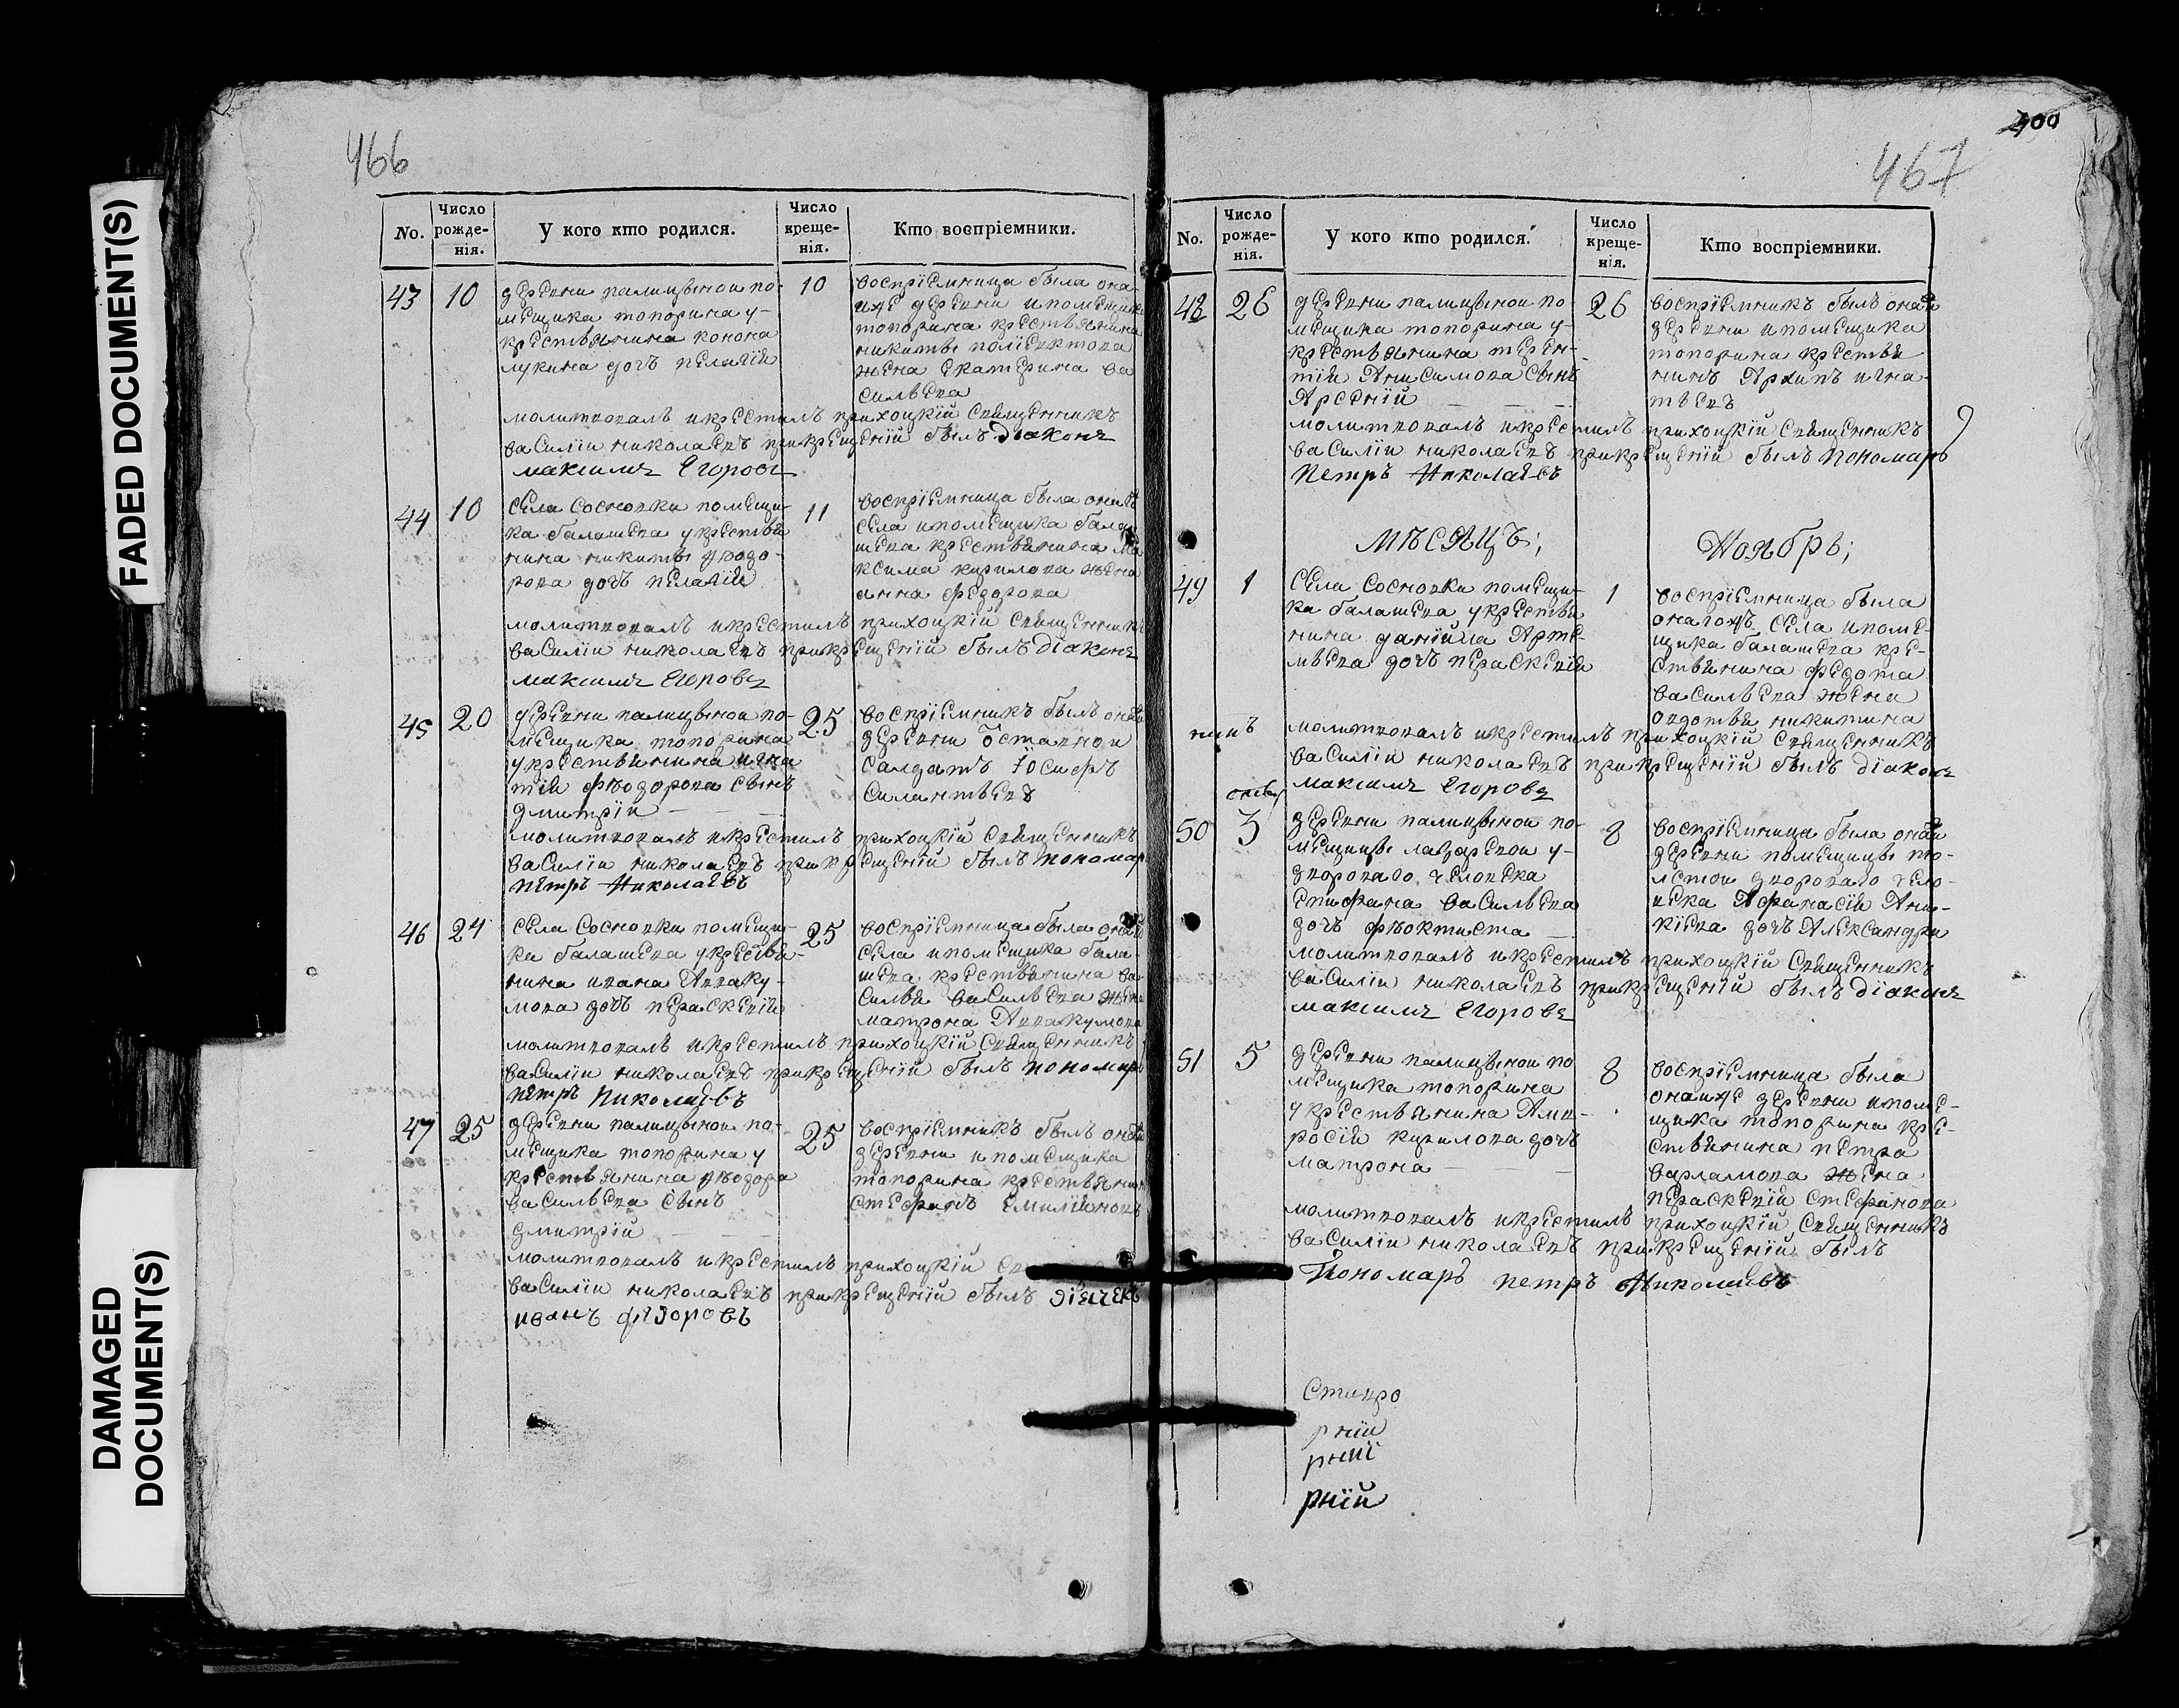 FADED DOCUMENT(S)
DAMAGED
DOCUMENT(S)
466
No.
Число
рожде-
нія.
У кого кто родился.
Число
креще-
нія.
Кто воспріемники.
43 10
деревни палицыной по-
мещика топорина у-
крестьянина конона
лукина дочь пелагія
10
воспріемница была она-
яже деревни ипомещика
топорина крестьянина
никиты полиектова
жена екатерина ва
сильева
молитвовалъ икрестилъ прихоцкій священникъ
василіи николаевъ прикрещеніи былъ діаконъ
максимъ Егоровъ
44 10
села Сосновки помещи-
ка балашева укрестья
нина никиты ѳеодо-
рова дочь пелагія
11
воспріемница была
села ипомещика бала
шева крестьянина ма
ксима кирилова жена
анна федорова
молитвовалъ икрестилъ прихоцкій священникъ
василіи николаевъ прикрещеніи былъ діаконъ
максимъ Егоровъ
45 20
деревни палицыной по-
мещика топорина
укрестьянина игна
тія ѳеодорова сынъ
дмитріи
25
воспріемникъ былъ
деревни
салдатъ іосифъ
силантьевъ
молитвовалъ икрестилъ прихоцкій священникъ
василіи николаевъ прикрещеніи былъ пономар
петръ Николаевъ
46 24
села Сосновки помещи-
ка балашева укрестья-
нина ивана Авваку-
мова дочь пераскевія
25
воспріемница была
села ипомещика бала-
шева крестьянина ва
силья васильева жена
матрона Аввакумова
молитвовалъ икрестилъ прихоцкій священникъ
василіи николаевъ прикрещеніи былъ пономарь
петръ Николаевъ
47 25
деревни палицыной по-
мещика топорина у
крестьянина ѳеодора
васильева сынъ
дмитрій
25
воспріемникъ былъ
деревни ипомещика
топорина крестьянин
стефанъ емиліяновъ
молитвовалъ икрестилъ прихоцкій
василіи николаевъ прикрещеніи былъ діячекъ
иванъ федоровъ
400
467
No.
Число
рожде-
нія.
У кого кто родился.
Число
креще-
нія.
Кто воспріемники.
48 26
деревни палицыной по-
мещика топорина у-
крестьянина терен-
тія Анисимова сынъ
Арсеній
26
воспріемникъ былъ
деревни ипомещика
топорина крестья
нинъ Архипъ игна-
тьевъ
молитвовалъ икрестилъ прихоцкій священникъ
василіи николаевъ прикрещеніи былъ пономарь
петръ Николаевъ
мѣсяцъ; Ноябрь;
49 1
села Сосновки помещи-
ка балашева укрестья
нина даніила Арте-
мьева дочь пераскевія
1
воспріемница была
оногожъ села ипоме-
щика балашева кре-
стьянина федота
васильева жена
овдотья никитина
молитвовалъ икрестилъ прихоцкій священникъ
василіи николаевъ прикрещеніи былъ діаконъ
максимъ Егоровъ
50 3
деревни палицыной по-
мещицы лазаревой у-
двороваго человека
епифана васильева
дочь ѳеоктиста
8
воспріемница была
деревни помещицы то-
лстои двороваго чело-
века Афанасія Ани-
кіева дочь Александра
молитвовалъ икрестилъ прихоцкій священникъ
василіи николаевъ прикрещеніи былъ діаконъ
максимъ Егоровъ
51 5
деревни палицыной по
мещика топорина
укрестьянина Амв-
росія кирилова дочь
матрона
8
воспріемница была
онаяже деревни ипоме-
щика топорина кре-
стьянина петра
варламова жена
пераскевія стефанова
молитвовалъ икрестилъ прихоцкій священникъ
василіи николаевъ прикрещеніи былъ
Пономарь петръ Николаевъ
рніи
рніі
рній